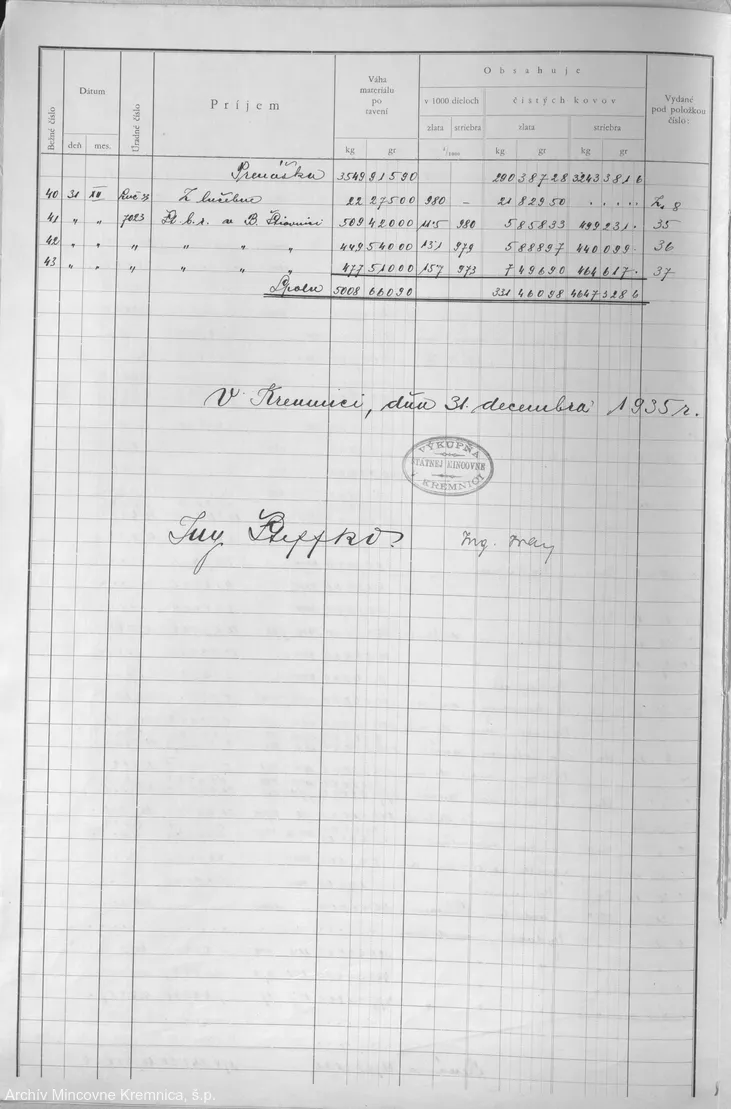 Obsahuje
Bežné číslo Dátum Úradné číslo Príjem Váha materialu po tavení v 1000 dieloch čistých kovov Vydané pod položkou číslo:
deň mes. zlata striebra zlata striebra
kg gr 1/1000 kg gr kg gr
Prenáška 3549 91590 290 38728 3243 3816
40 31 XII Z lučebne 22 27500 980 – 21 82950 . . . . . 8
41 " " 7023 B. Štiavnici 509 42000 115 980 58 5833 499 231 . 35
42 " " " " " " 449 54000 131 979 58 8897 440 099 . 36
43 " " " " " " 477 51000 157 973 7 49690 464 617 . 37
Spolu 5008 66090 331 46098 4647 3286
V Kremnici, dňa 31. decembra 1935 r.
VÝKUPŇA
ŠTÁTNEJ MINCOVNE
KREMNICI
Ing. Ing.
Archív Mincovne Kremnica, š.p.